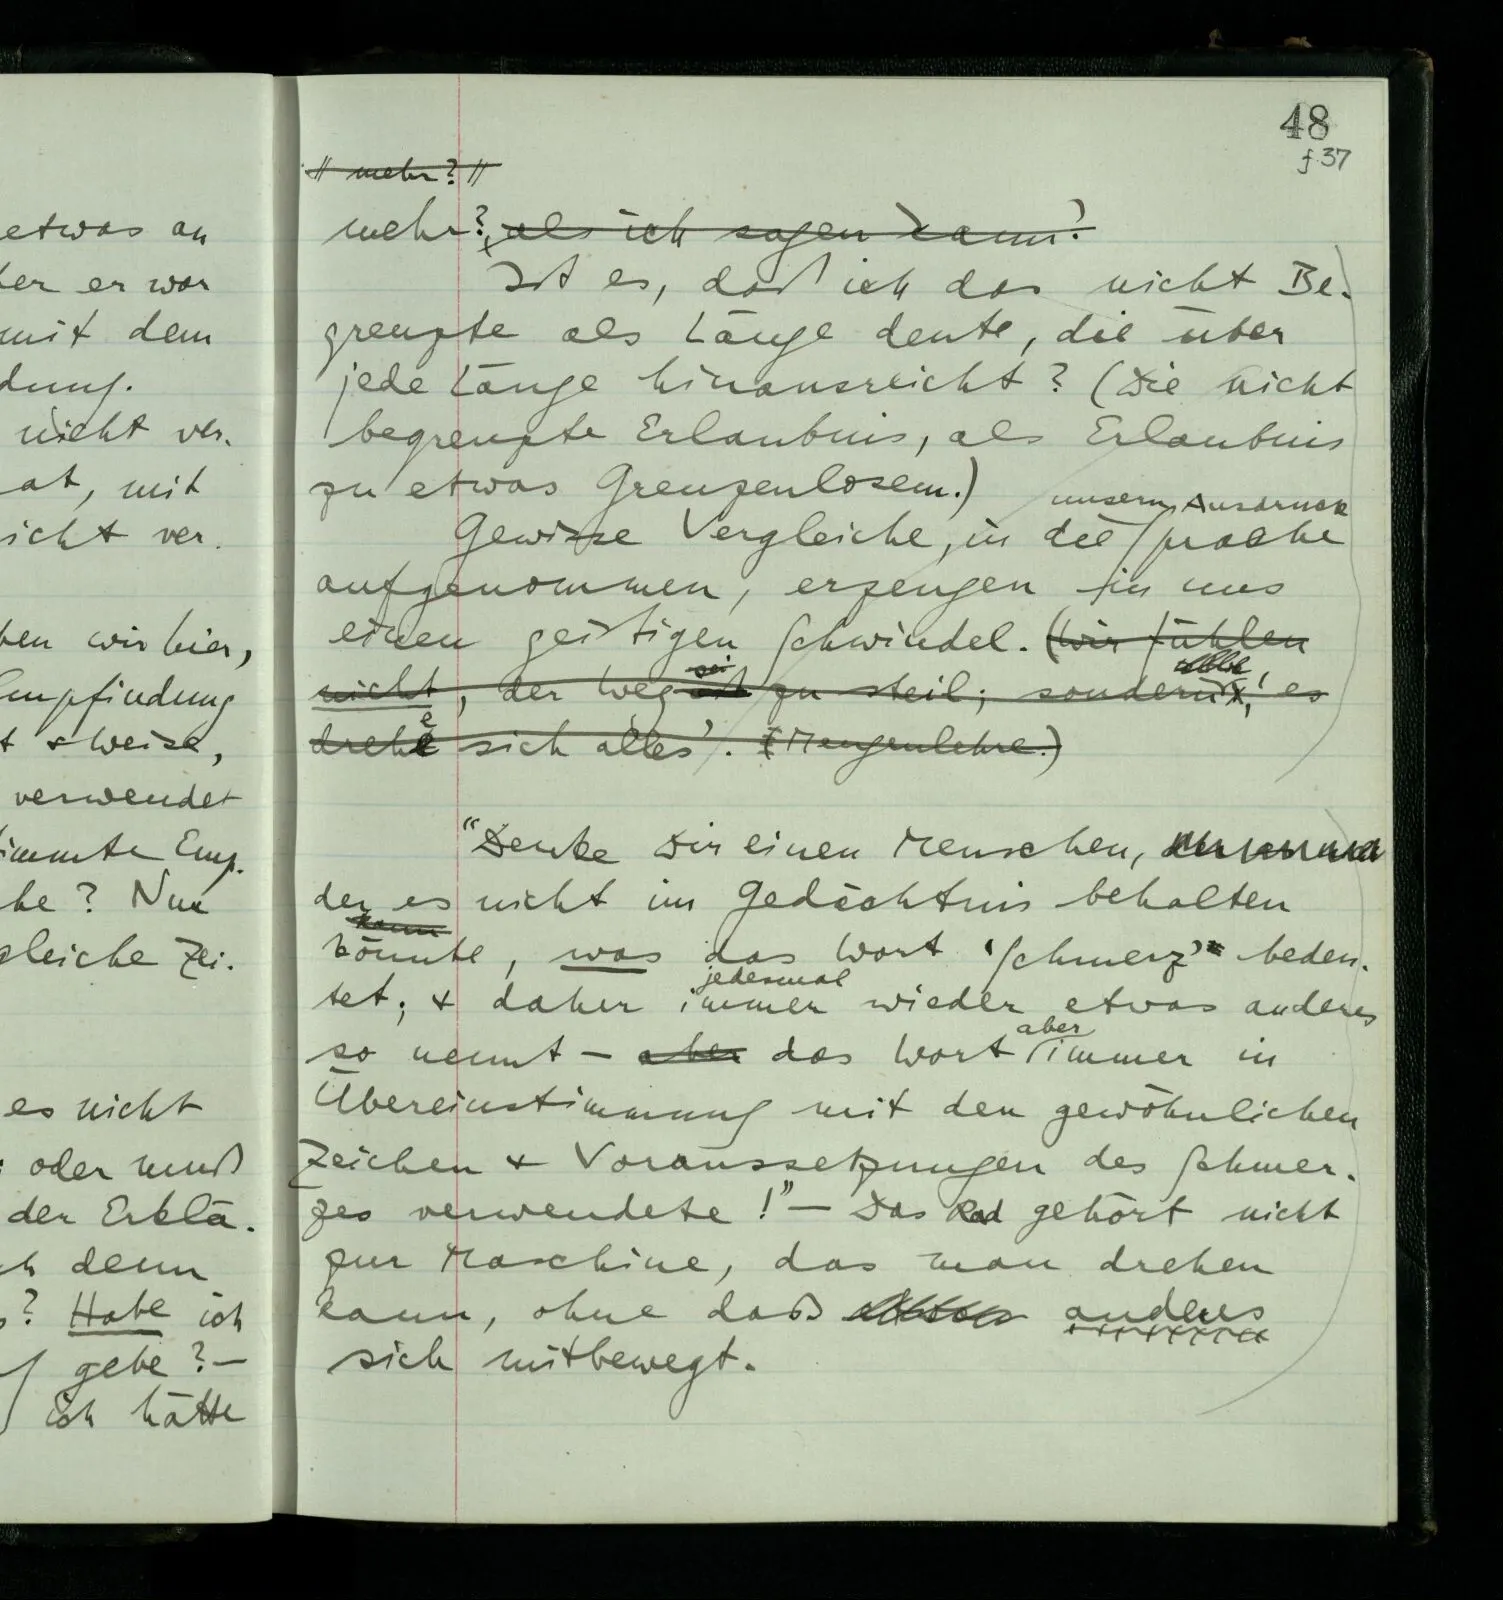 etwas an
er war
mit dem
dung.
nicht ver-
at, mit
icht ver-
ben wir hier,
Empfindung
t & Weise,
verwendet
timmte Emp-
he? Nun
gleiche Zei-
es nicht
oder muß
der Erklä-
h denn
? Habe ich
gebe? –
ich hätte
48
f. 37
// mehr? //
mehr?, als ich sagen kann?
Ist es, daß ich das nicht Be-
grenzte als Länge deute, die über
jede Länge hinausreicht? (Die nicht
begrenzte Erlaubnis, als Erlaubnis
zu etwas Grenzenlosem.)
unsern Ausdruck
Gewisse Vergleiche, in die Sprache
aufgenommen, erzeugen in uns
einen geistigen Schwindel. (Wir fühlen
sei
nicht, der Weg ist zu steil; sondern, ' es
drehe sich alles'. (Mengenlehre.)
"Denke Dir einen Menschen,
der es nicht im Gedächtnis behalten
kann
könnte, was das Wort 'Schmerz' bedeu-
jedesmal
tet; & daher immer wieder etwas anderes
aber
so nennt – aber das Wort immer in
Übereinstimmung mit den gewöhnlichen
Zeichen & Voraussetzungen des Schmer-
zes verwendete!" – Das Rad gehört nicht
zur Maschine, das man drehen
kann, ohne daß anderes
sich mitbewegt.